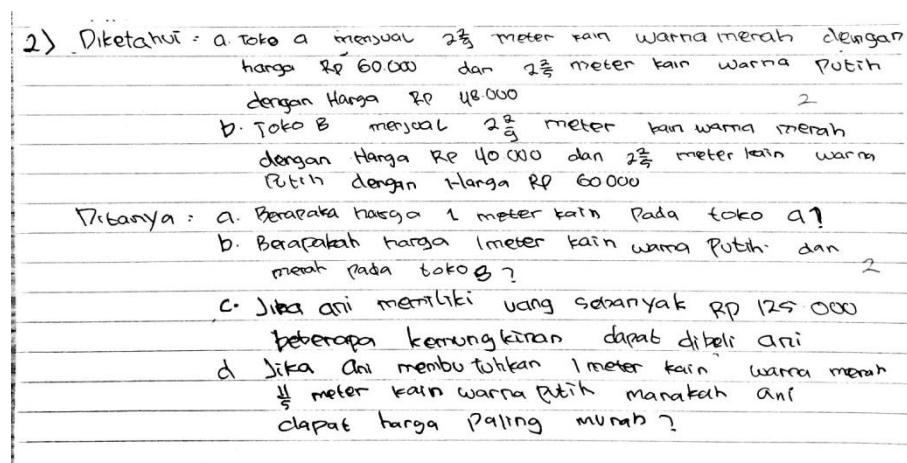 2) Diketahui : a. Toko a menjual 2 2/3 meter kain warna merah dengan
harga Rp 60.000 dan 2 2/5 meter kain warna putih
dengan Harga Rp 48.000
2
b. Toko B menjual 2 2/9 meter kain warna merah
dengan Harga Rp 40 000 dan 2 2/5 meter kain warna
Putih dengan Harga Rp 60000
Ditanya : a. Berapaka harga 1 meter kain Pada toko a?
b. Berapakah harga 1meter kain warna Putih dan
merah pada toko B ?
2
c. Jika ani memiliki uang sebanyak RP 125 000
beberapa kemungkinan dapat dibeli ani
d Jika Ani membutuhkan 1 meter kain warna merah
11/5 meter kain warna Putih manakah ani
dapat harga Paling murah ?